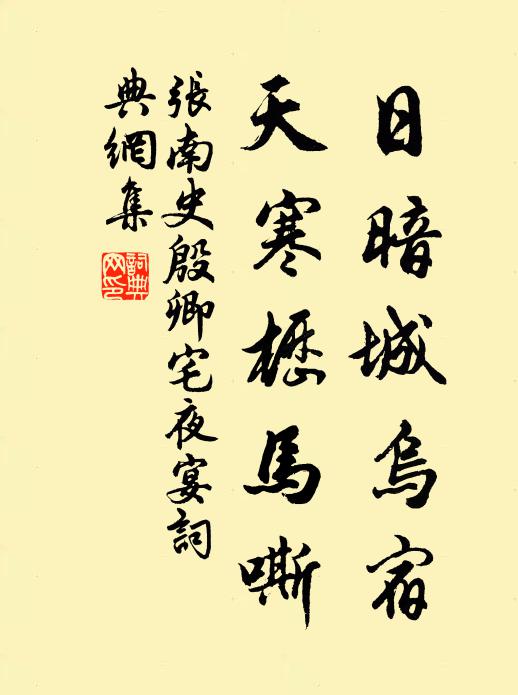 日暗城烏宿
天寒櫪馬嘶
張南史殷卿宅夜宴詞
典網集
詞典
网印